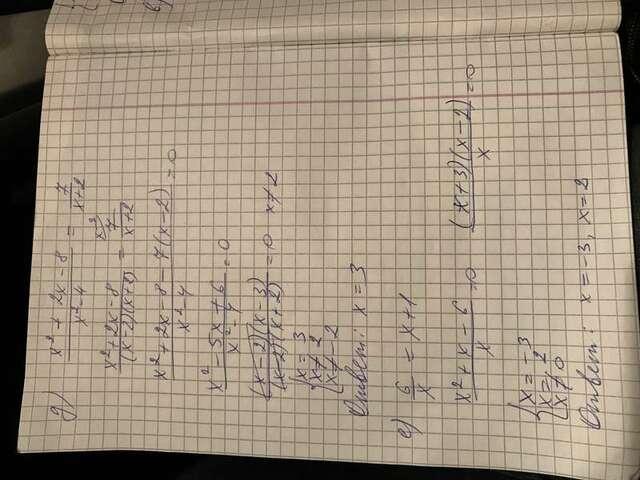 д) (x² + 2x - 8)/(x² - 4) = 7/(x+2)
(x² + 2x - 8)/((x-2)(x+2)) = 7/(x+2)
(x² + 2x - 8 - 7(x-2))/(x² - 4) = 0
(x² - 5x + 6)/(x² - 4) = 0
((x-2)(x-3))/((x-2)(x+2)) = 0 x ≠ 2
{x = 3
x ≠ 2
x ≠ -2
Ответ: x = 3
е) 6/x = x+1
(x² + x - 6)/x = 0 ((x+3)(x-2))/x = 0
{x = -3
x = 2
x ≠ 0
Ответ: x = -3, x = 2